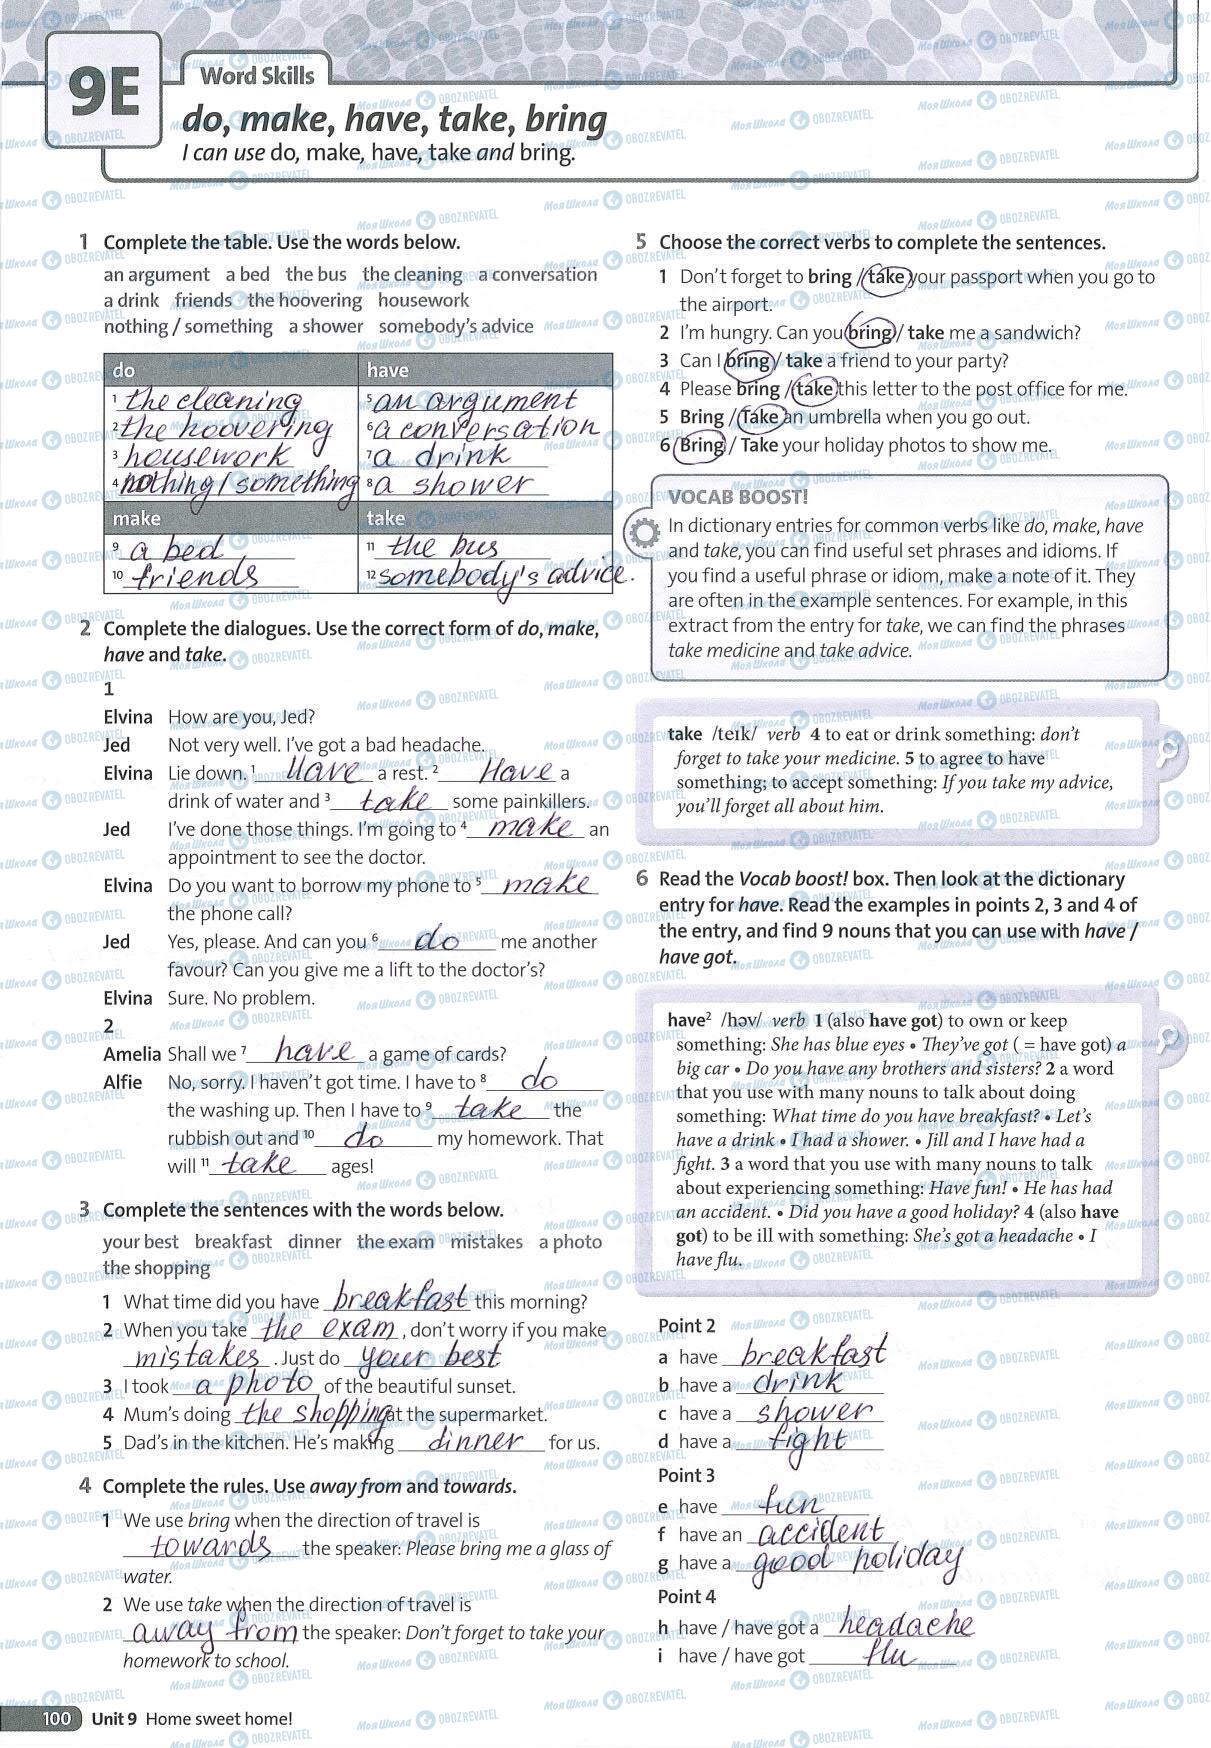 9E
Word Skills
do, make, have, take, bring
I can use do, make, have, take and bring.
1 Complete the table. Use the words below.
an argument a bed the bus the cleaning a conversation
a drink friends the hoovering housework
nothing / something a shower somebody's advice
do have
1 the cleaning 5 an argument
2 the hoovering 6 a conversation
3 housework 7 a drink
4 nothing / something 8 a shower
make take
9 a bed 11 the bus
10 friends 12 somebody's advice.
2 Complete the dialogues. Use the correct form of do, make,
have and take.
1
Elvina How are you, Jed?
Jed Not very well. I've got a bad headache.
Elvina Lie down. 1 Have a rest. 2 Have a
drink of water and 3 take some painkillers.
Jed I've done those things. I'm going to 4 make an
appointment to see the doctor.
Elvina Do you want to borrow my phone to 5 make
the phone call?
Jed Yes, please. And can you 6 do me another
favour? Can you give me a lift to the doctor's?
Elvina Sure. No problem.
2
Amelia Shall we 7 have a game of cards?
Alfie No, sorry. I haven't got time. I have to 8 do
the washing up. Then I have to 9 take the
rubbish out and 10 do my homework. That
will 11 take ages!
3 Complete the sentences with the words below.
your best breakfast dinner the exam mistakes a photo
the shopping
1 What time did you have breakfast this morning?
2 When you take the exam, don't worry if you make
mistakes. Just do your best
3 I took a photo of the beautiful sunset.
4 Mum's doing the shopping at the supermarket.
5 Dad's in the kitchen. He's making dinner for us.
4 Complete the rules. Use away from and towards.
1 We use bring when the direction of travel is
towards the speaker: Please bring me a glass of
water.
2 We use take when the direction of travel is
away from the speaker: Don't forget to take your
homework to school.
100 Unit 9 Home sweet home!
5 Choose the correct verbs to complete the sentences.
1 Don't forget to bring / take your passport when you go to
the airport.
2 I'm hungry. Can you bring / take me a sandwich?
3 Can I bring / take a friend to your party?
4 Please bring / take this letter to the post office for me.
5 Bring / Take an umbrella when you go out.
6 Bring / Take your holiday photos to show me.
VOCAB BOOST!
In dictionary entries for common verbs like do, make, have
and take, you can find useful set phrases and idioms. If
you find a useful phrase or idiom, make a note of it. They
are often in the example sentences. For example, in this
extract from the entry for take, we can find the phrases
take medicine and take advice.
take /teɪk/ verb 4 to eat or drink something: don't
forget to take your medicine. 5 to agree to have
something; to accept something: If you take my advice,
you'll forget all about him.
6 Read the Vocab boost! box. Then look at the dictionary
entry for have. Read the examples in points 2, 3 and 4 of
the entry, and find 9 nouns that you can use with have /
have got.
have² /həv/ verb 1 (also have got) to own or keep
something: She has blue eyes • They've got ( = have got) a
big car • Do you have any brothers and sisters? 2 a word
that you use with many nouns to talk about doing
something: What time do you have breakfast? • Let's
have a drink • I had a shower. • Jill and I have had a
fight. 3 a word that you use with many nouns to talk
about experiencing something: Have fun! • He has had
an accident. • Did you have a good holiday? 4 (also have
got) to be ill with something: She's got a headache • I
have flu.
Point 2
a have breakfast
b have a drink
c have a shower
d have a fight
Point 3
e have fun
f have an accident
g have a good holiday
Point 4
h have / have got a headache
i have / have got flu
МояШкола OBOZREVATEL